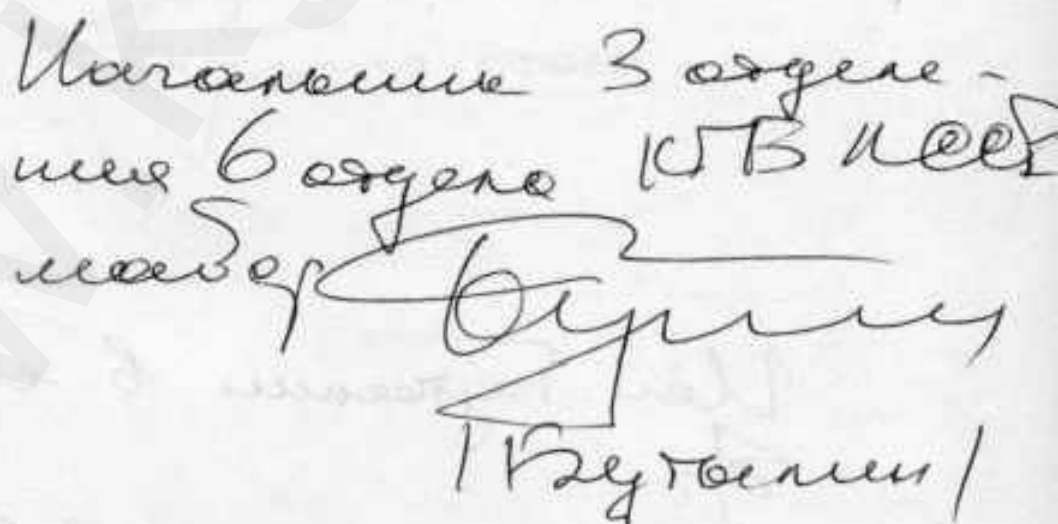 Начальник 3 отделе-
ния 6 отдела КГБ ЛССР
майор